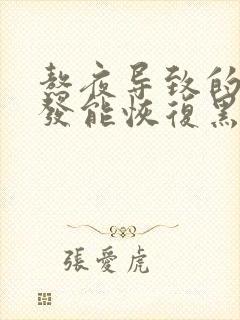 熬夜导致的
發能恢復黑
張愛虎